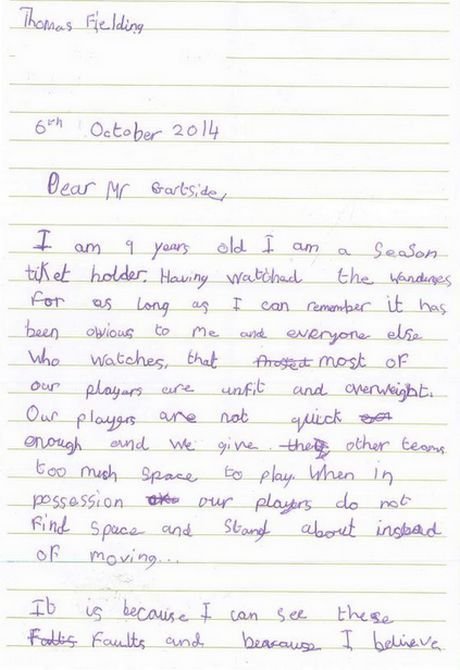 Thomas Fielding
6th October 2014
Dear Mr Gartside,
I am 9 years old I am a season
tiket holder. Having watched the wanderes
For as long as I can remember it has
been obvious to me and everyone else
who watches, that most of
our players are unfit and overweight.
Our players are not quick
enough and we give other teams
too mush space to play. When in
possession our players do not
find space and stand about instead
of moving...
It is because I can see these
Faults and beacause I believe